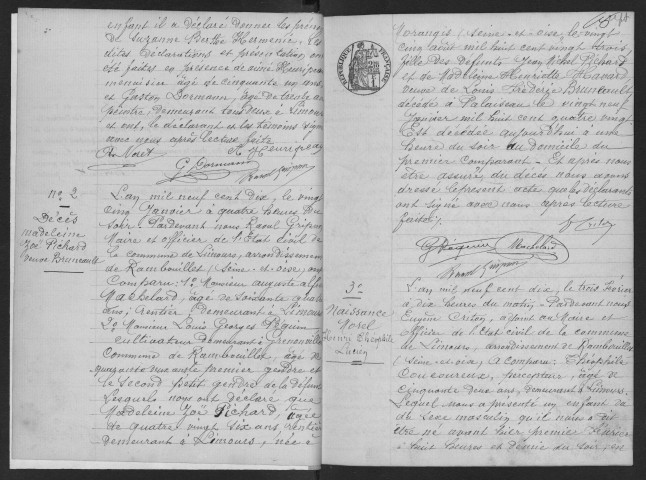 enfant il a déclaré donner les prénoms
de Suzanne Berthe Hermence. Les
dites déclarations et présentation ont
été faites en présence de
menuisier âgé de cinquante un ans
et Gaston Dormann, âgé de trente ans
peintre, demeurant tous deux à Limours
et ont, le déclarant et les témoins signé
avec nous après lecture faite
G Dormann
No 2
Décès
Madeleine
Zoé Pichard
veuve Bruneault
L'an mil neuf cent dix, le vingt
cinq Janvier à quatre heures du
soir. Pardevant nous Raoul
Maire et officier de l'Etat civil de
la commune de Limours, arrondissement
de Rambouillet (Seine-et-Oise), ont
comparu: 1o Monsieur Auguste
âgé de soixante quatre
ans, rentier demeurant à Limours
2o Monsieur Louis Georges
cultivateur demeurant à
commune de Rambouillet, âgé de
quarante ans premier gendre et
le second petit gendre de la défunte
Lesquels nous ont déclaré que
Madeleine Zoé Pichard âgée
de quatre vingt six ans, rentière
demeurant à Limours, née à
Morangis (Seine-et-Oise) le vingt
cinq août mil huit cent vingt trois,
fille des défunts Jean Pichard
et de Madeleine Henriette
veuve de Louis Frédéric Bruneault
décédé à Palaiseau le vingt neuf
Janvier mil huit cent quatre vingt
Est décédée aujourd'hui à une
heure du soir au domicile du
premier comparant. Et après nous
être assuré du décès nous avons
dressé le présent acte que les déclarants
ont signé avec nous après lecture
faite
RÉPUBLIQUE FRANÇAISE
3o
Naissance
Morel
Henry Théophile
Lucien
L'an mil neuf cent dix, le trois février
à dix heures du matin, Pardevant nous
Eugène, adjoint au Maire et
officier de l'Etat civil de la commune
de Limours, arrondissement de Rambouillet
(Seine-et-Oise), a comparu: Théophile
percepteur, âgé de
cinquante deux ans, demeurant à Limours,
Lequel nous a présenté un enfant
du sexe masculin qu'il nous a dit
être né avant hier, premier Février
à huit heures et demie du soir, en